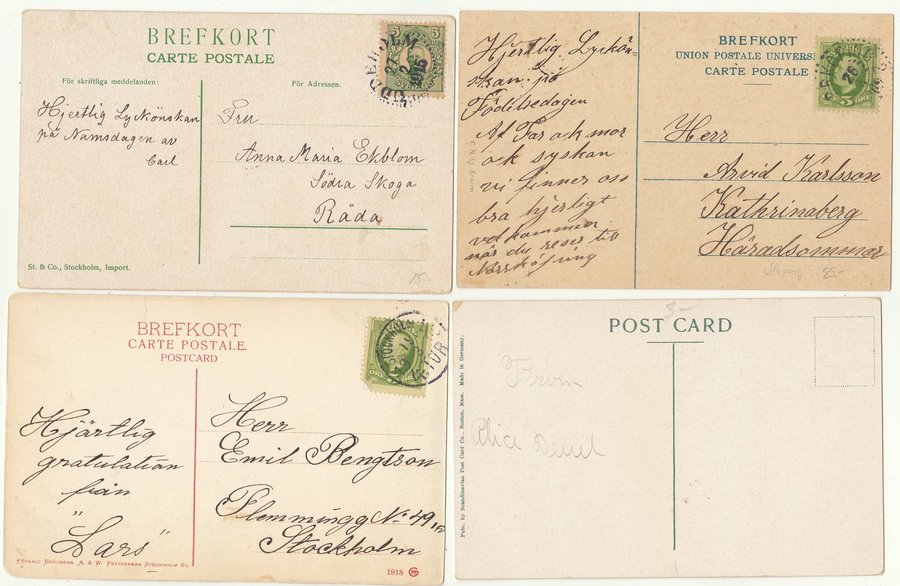 BREFKORT
CARTE POSTALE
För skriftliga meddelanden:
För Adressen.
Hjertlig Lyckönskan
på Namsdagen av
Carl
Fru
Anna Maria Ekblom
Södra Skoga
Råda
St. & Co., Stockholm, Import.
15.-
5
BREFKORT
UNION POSTALE UNIVERS
CARTE POSTALE
Hjertlig Lyckön-
skan på
Födelsedagen
Af Far ock mor
ock syskan
vi finner oss
bra hjerligt
velkommen
når du reser till
Norrköping
Herr
Arvid Karlsson
Kathrinaberg
Häradsommar
25.-
5 ÖRE
BREFKORT
CARTE POSTALE.
POSTCARD
Hjärtlig
gratulation
från
"Lars"
Herr
Emil Bengtson
Flemmingg No 49
Stockholm
FÖRLAG: BRÖDERNA A. & W. PETTERSSON STOCKHOLM St.
1918
3-
POST CARD
From
Publ. by Scandinavian Post Card Co., Boston, Mass. Made in Germany.